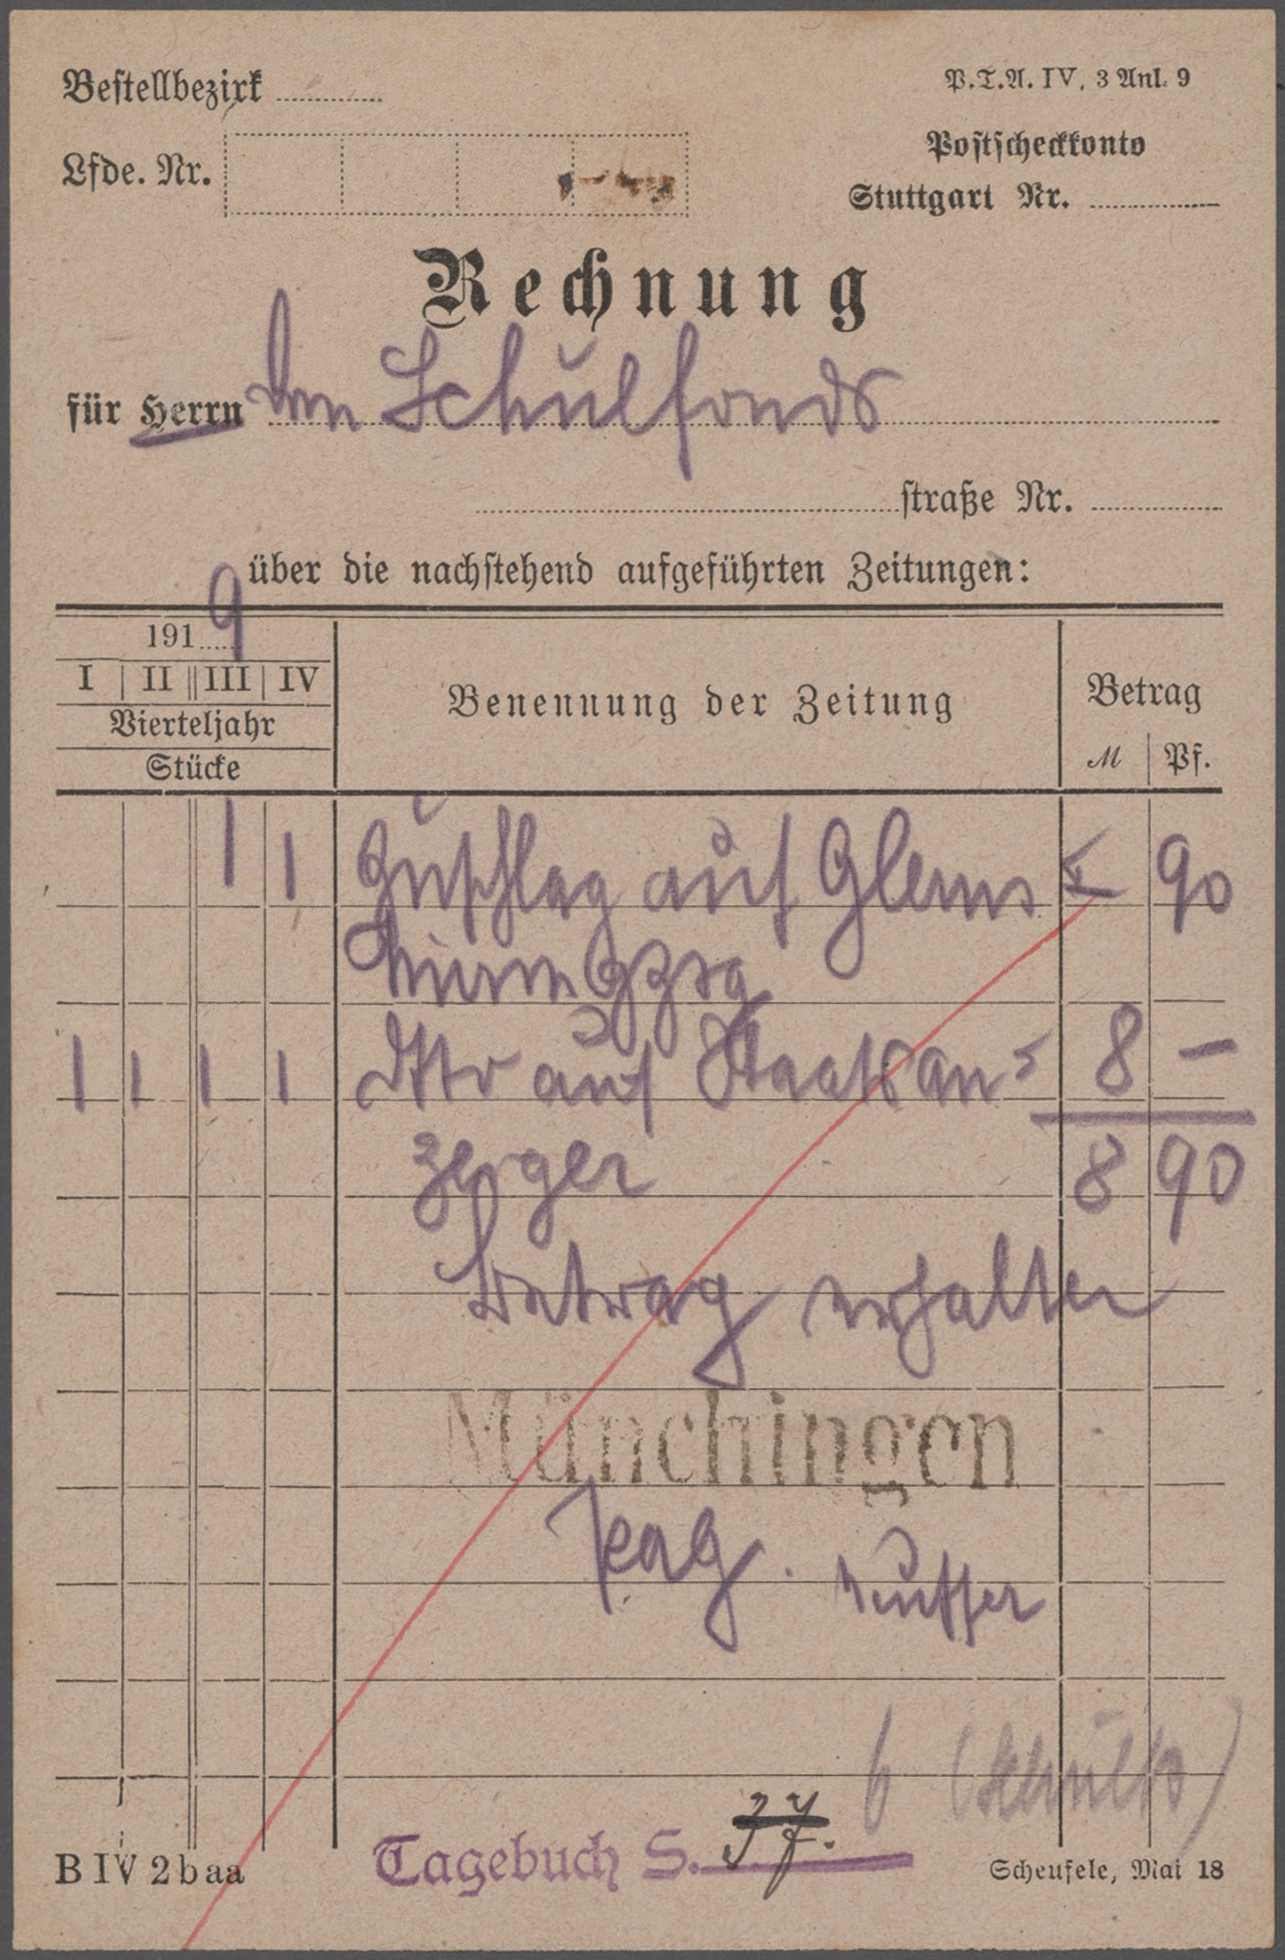 Bestellbezirk
P.T.A. IV, 3 Anl. 9
Lfde. Nr.
Postscheckkonto
Stuttgart Nr.
Rechnung
für Herrn den Schulfonds
straße Nr.
über die nachstehend aufgeführten Zeitungen:
1919
I II III IV
Vierteljahr
Stücke
Benennung der Zeitung
Betrag
M Pf.
1 1 Zuschlag auf Glems 90
1 1 1 1 dtto auf Staatsan= 8 –
zeiger 8 90
Betrag erhalten
Münchingen
Pag.
(Schult)
Tagebuch S. 37.
B IV 2 b aa
Scheufele, Mai 18